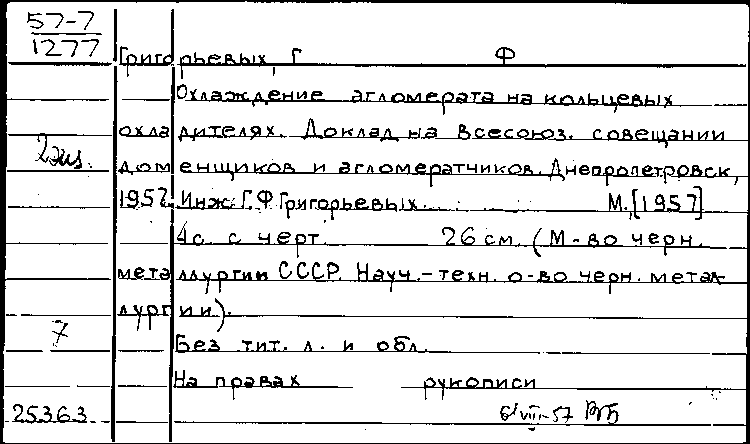 57-7
1277
Григорьевых, Г Ф
Охлаждение агломерата на кольцевых
охладителях. Доклад на Всесоюз. совещании
2 экз.
доменщиков и агломератчиков. Днепропетровск,
1957. Инж. Г.Ф. Григорьевых. М., [1957]
4 с. с черт. 26 см. (М-во черн.
металлургии СССР. Науч.-техн. о-во черн. метал-
лургии).
7
Без тит. л. и обл.
На правах рукописи
25363 6/VIII-57